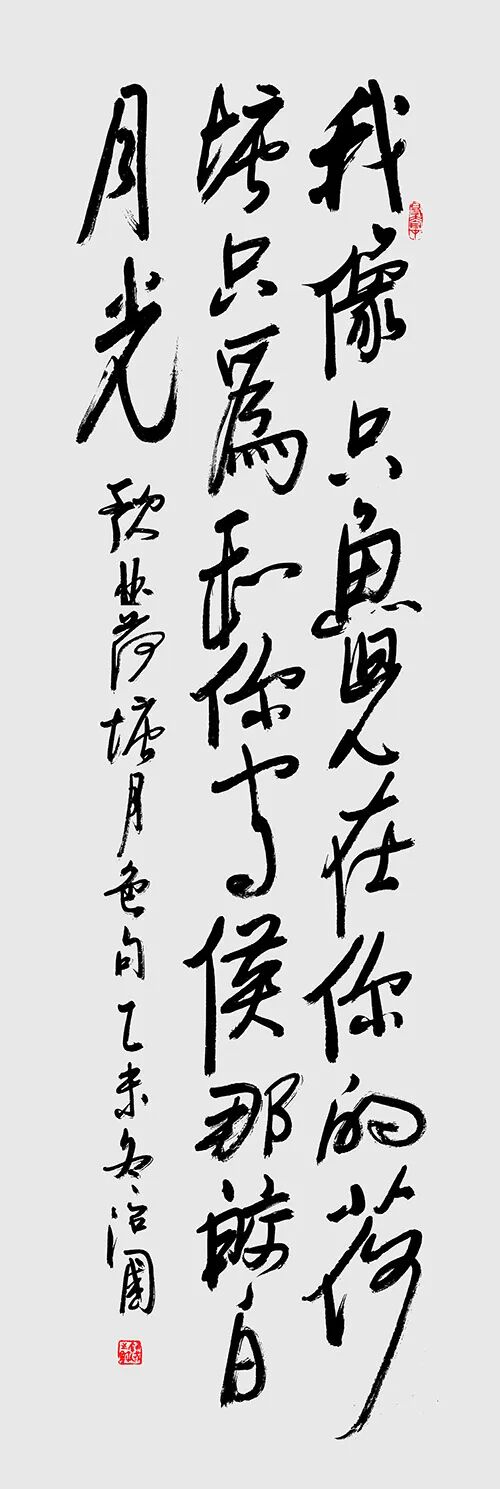 我像只魚兒在你的荷
塘只為和你守候那皎白
月光
歌曲荷塘月色句乙未冬治國